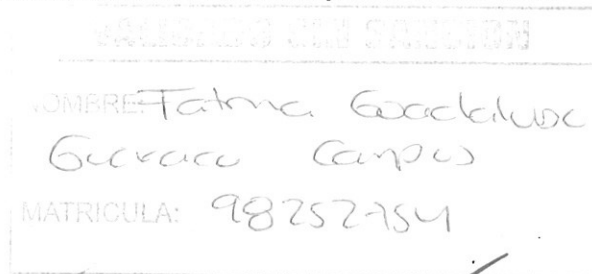 NOMBRE: Fatima Guadalupe
Guevara Campos
MATRICULA: 98252754